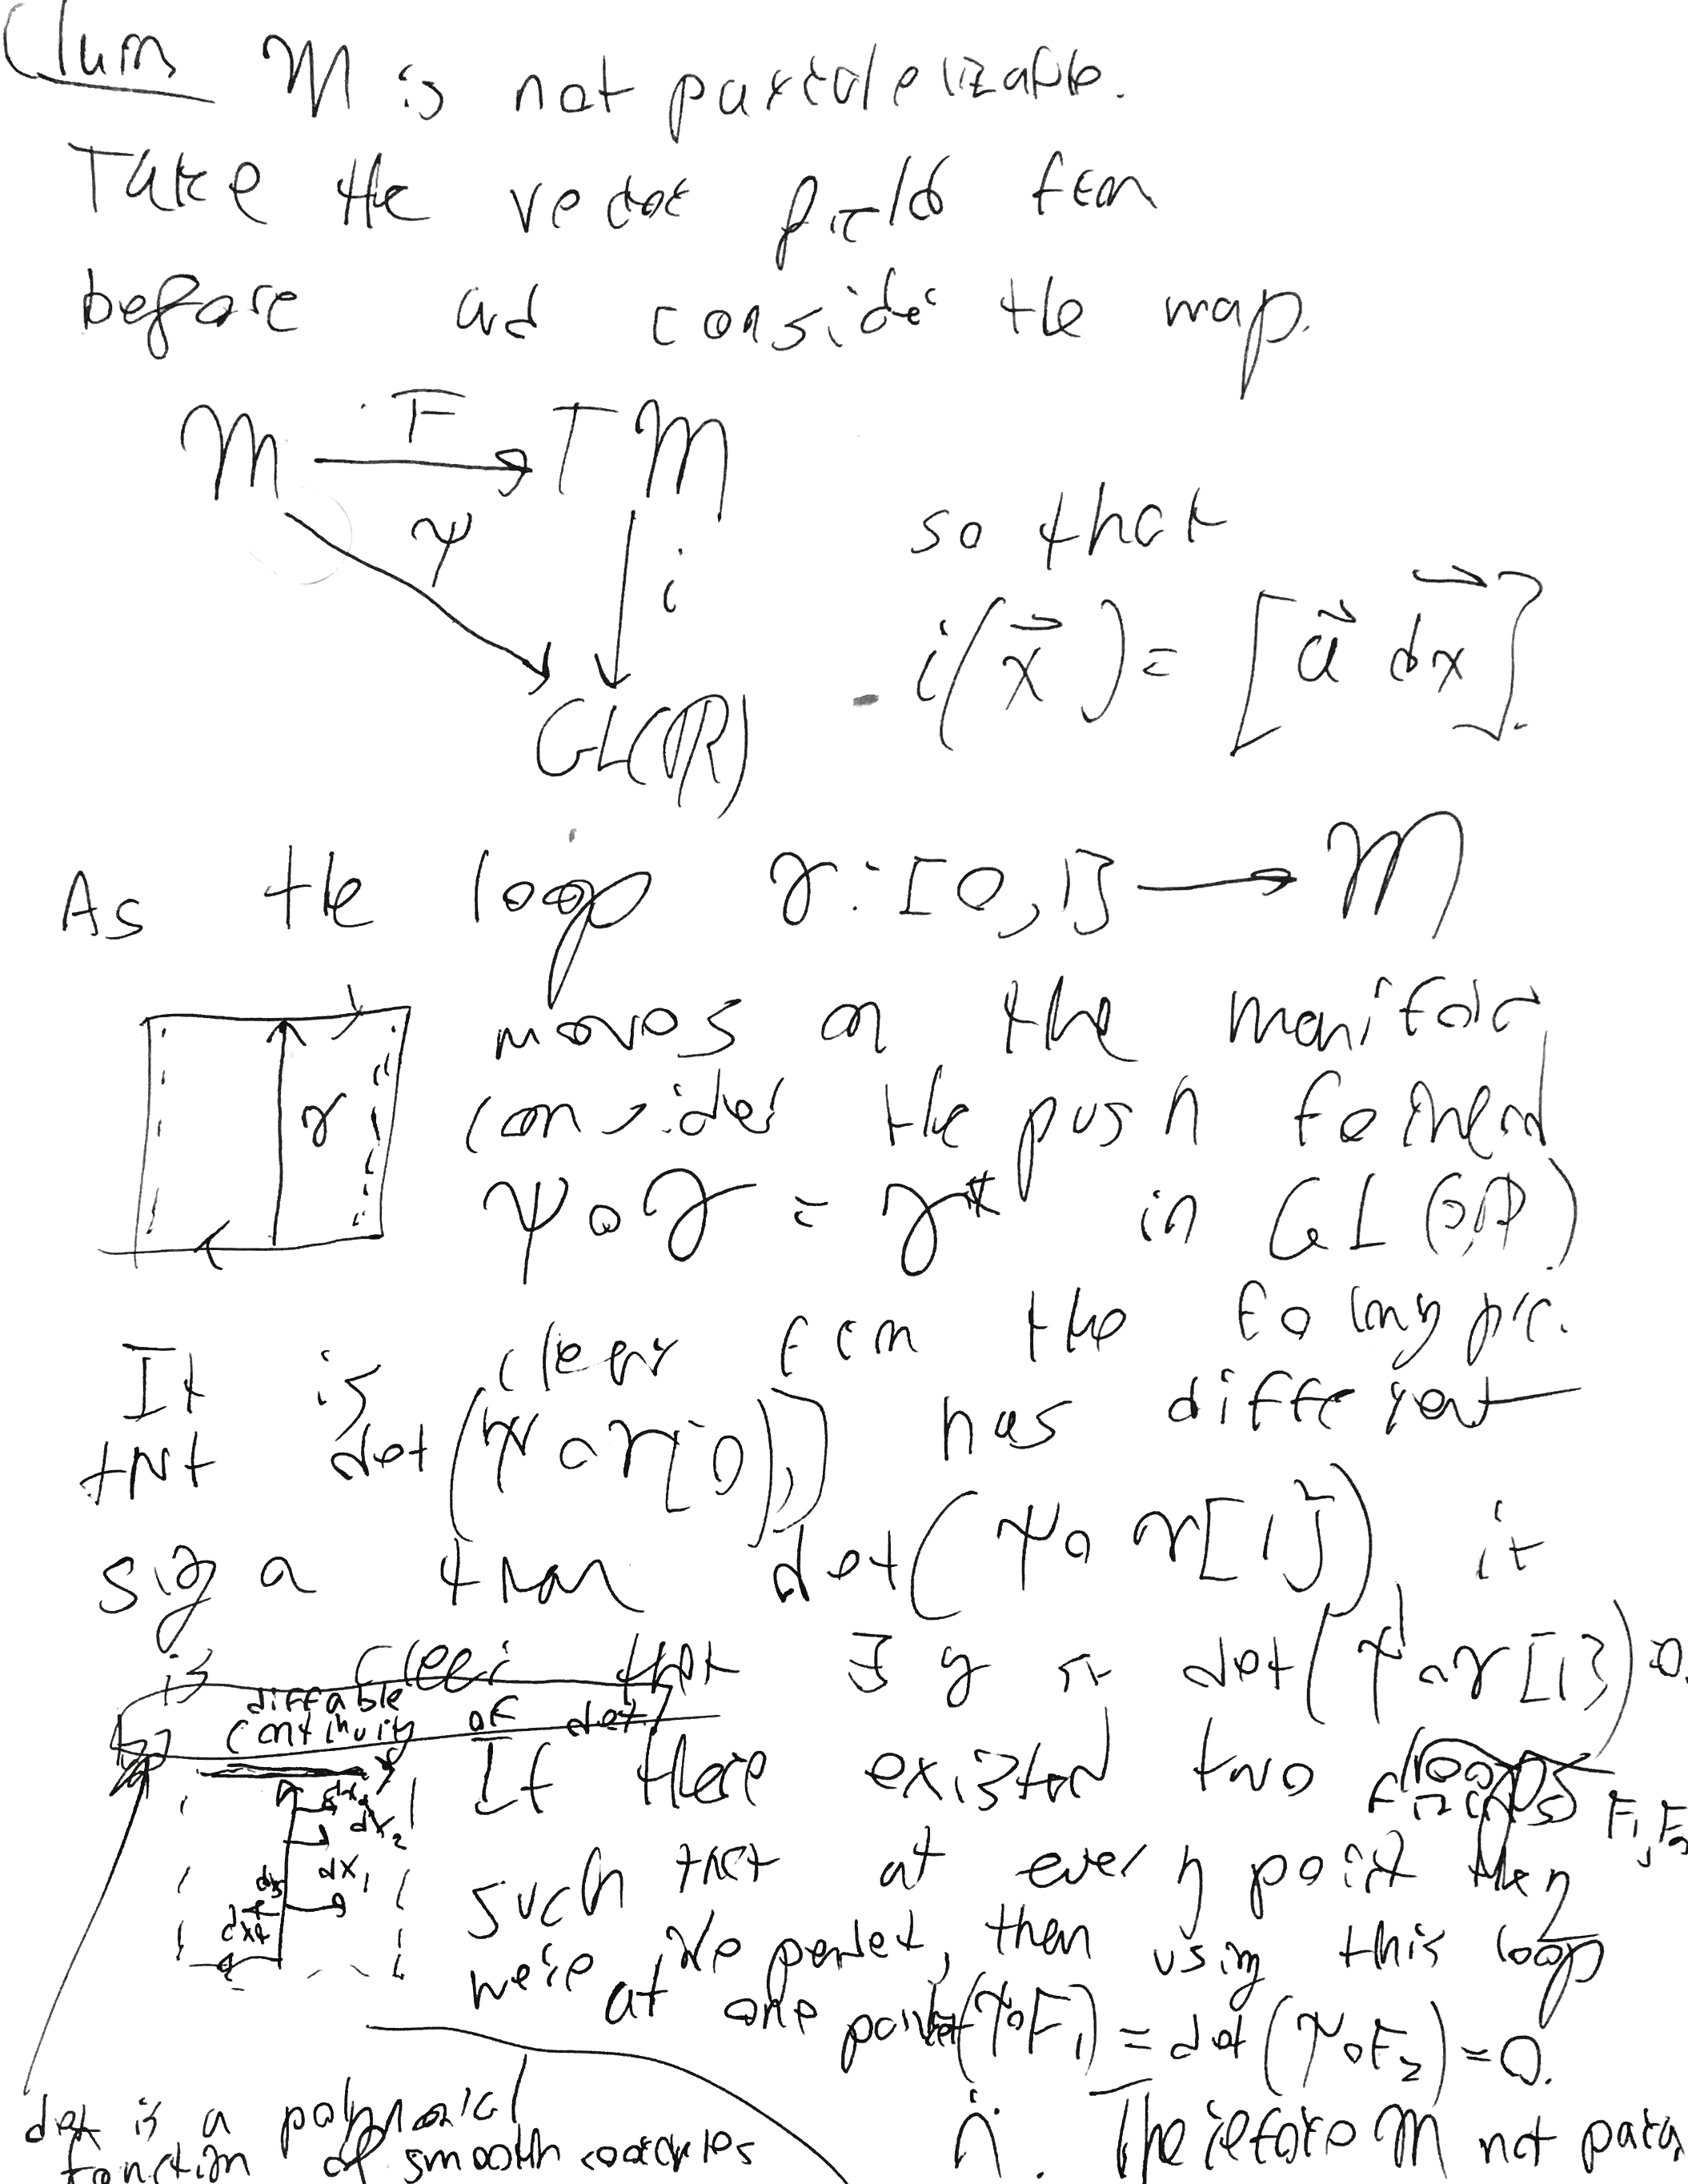 Claim M is not parralelizable.
Take the vector field from
before and consider the map.
M F T M
ψ i
so that
GL(R)
i(x⃗) = [a⃗ dx⃗].
As the loop γ: [0,1] → M
moves on the manifold
γ
consider the push forward
ψ∘γ = γ* in GL( ,R)
It is clear from the following pic.
that det(ψ∘γ[0]) has different
sign than det(ψ∘γ[1]) it
is clear that ∃ y st det(ψ∘γ[ ]) 0.
by diffable
continuity of det
If there existed two F1, F2
dx2
dx1
dx4
such that at every point they
were independent, then using this loop
at one point det(ψ∘F1) = det(ψ∘F2) = 0.
det is a polynomial
function of smooth coordinates
Therefore M not para